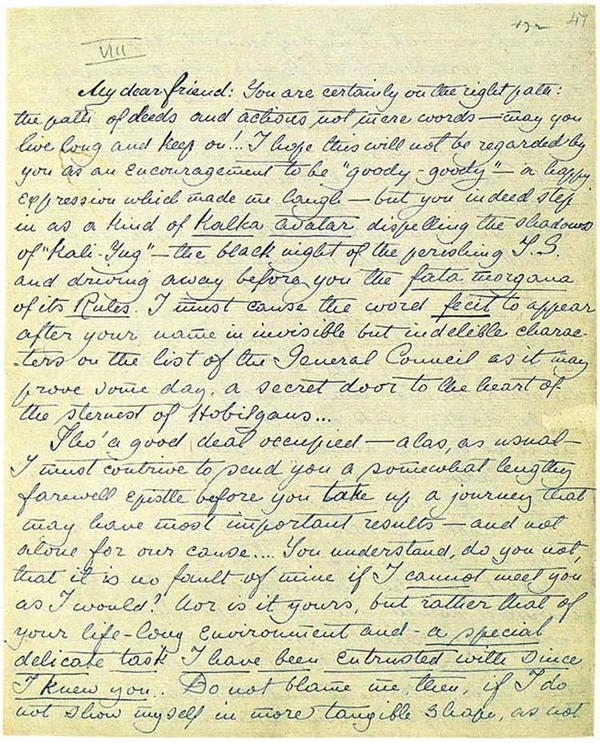 VIII
47
My dear friend: You are certainly on the right path:
the path of deeds and actions not mere words — may you
live long and keep on!.. I hope this will not be regarded by
you as an encouragement to be "goody-goody" — a happy
expression which made me laugh — but you indeed step
in as a kind of Kalka avatar dispelling the shadows
of "Kali-Yug" — the black night of the perishing T.S.
and driving away before you the fata morgana
of its Rules. I must cause the word fecit to appear
after your name in invisible but indelible charac-
-ters on the list of the General Council as it may
prove some day, a secret door to the heart of
the sternest of Hobilgans...
Tho' a good deal occupied — alas, as usual —
I must contrive to send you a somewhat lengthy
farewell epistle before you take up a journey that
may have most important results — and not
alone for our cause.... You understand, do you not,
that it is no fault of mine if I cannot meet you
as I would? Nor is it yours, but rather that of
your life-long environment and - a special
delicate task I have been entrusted with since
I knew you. Do not blame me, then, if I do
not show myself in more tangible shape, as not